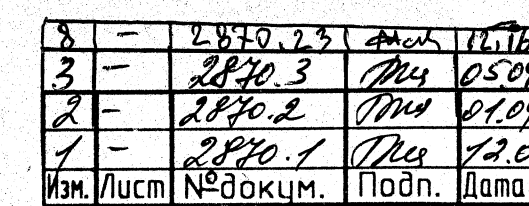 8 – 2870.23 12.16
3 – 2870.3 05.0
2 – 2870.2 01.0
1 – 2870.1 12.0
Изм. Лист №докум. Подп. Дата